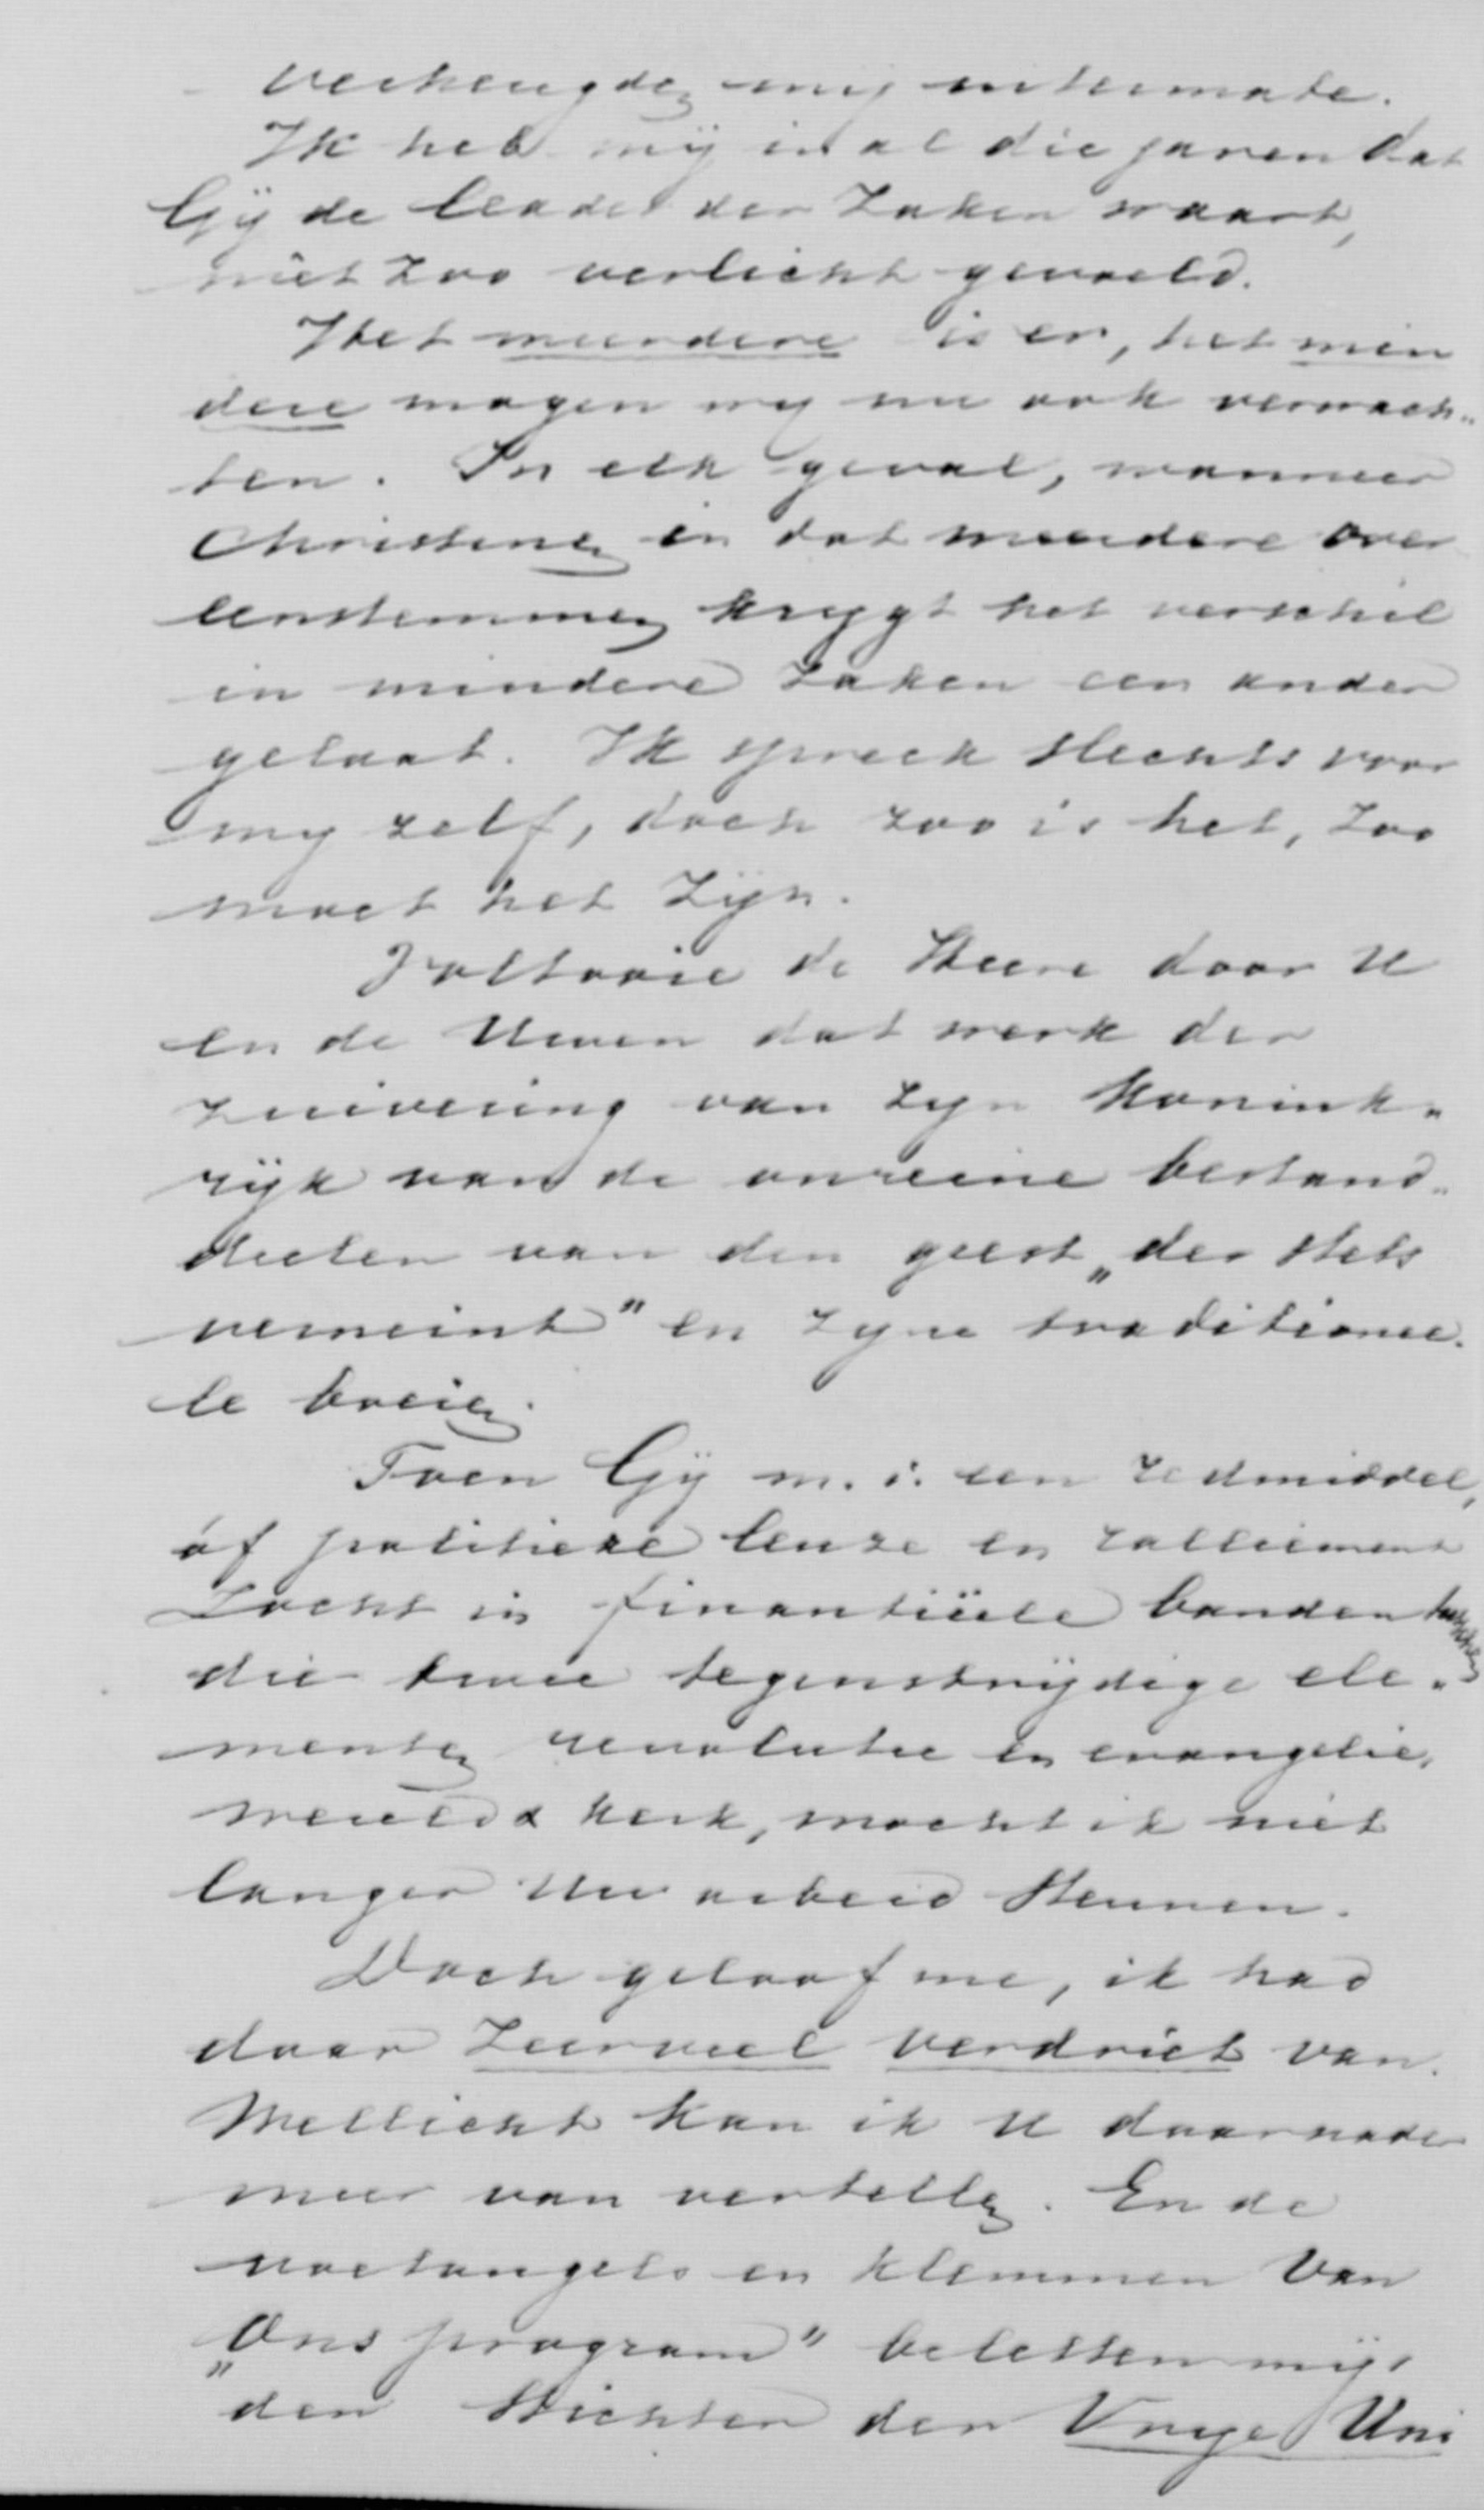 verheugde mij uitermate.
Ik heb mij in al die jaren dat
Gij de leader der zaken waart,
niet zoo verlicht gevoeld.
Het meerdere is er, het min
dere mogen wy nu ook verwach„
ten. In elk geval, wanneer
Christenen in dat meerdere over
eenstemmen krygt het verschil
in mindere zaken een ander
gelaat. Ik spreek slechts voor
my zelf, doch zoo is het, zoo
moet het zijn.
Voltooie de Heere door U
en de Uwen dat werk der
zuivering van zyn Konink„
rijk van de onreine bestand„
deelen van den geest „der stets
verneint" en zyne traditionee„
le
Toen Gij m. i. een redmiddel,
óf politieke leuze en ralliement
zocht in finantiëele banden tusschen
die twee tegenstrijdige ele„
menten revolutie en evangelie,
wereld & kerk, mocht ik niet
langer Uw arbeid steunen.
Doch geloof me, ik had
daar zeer veel verdriet van.
Wellicht kan ik U daar nader
meer van vertellen. En de
voetangels en klemmen van
„Ons program" beletten mij,
den Stichter der Vrije Uni